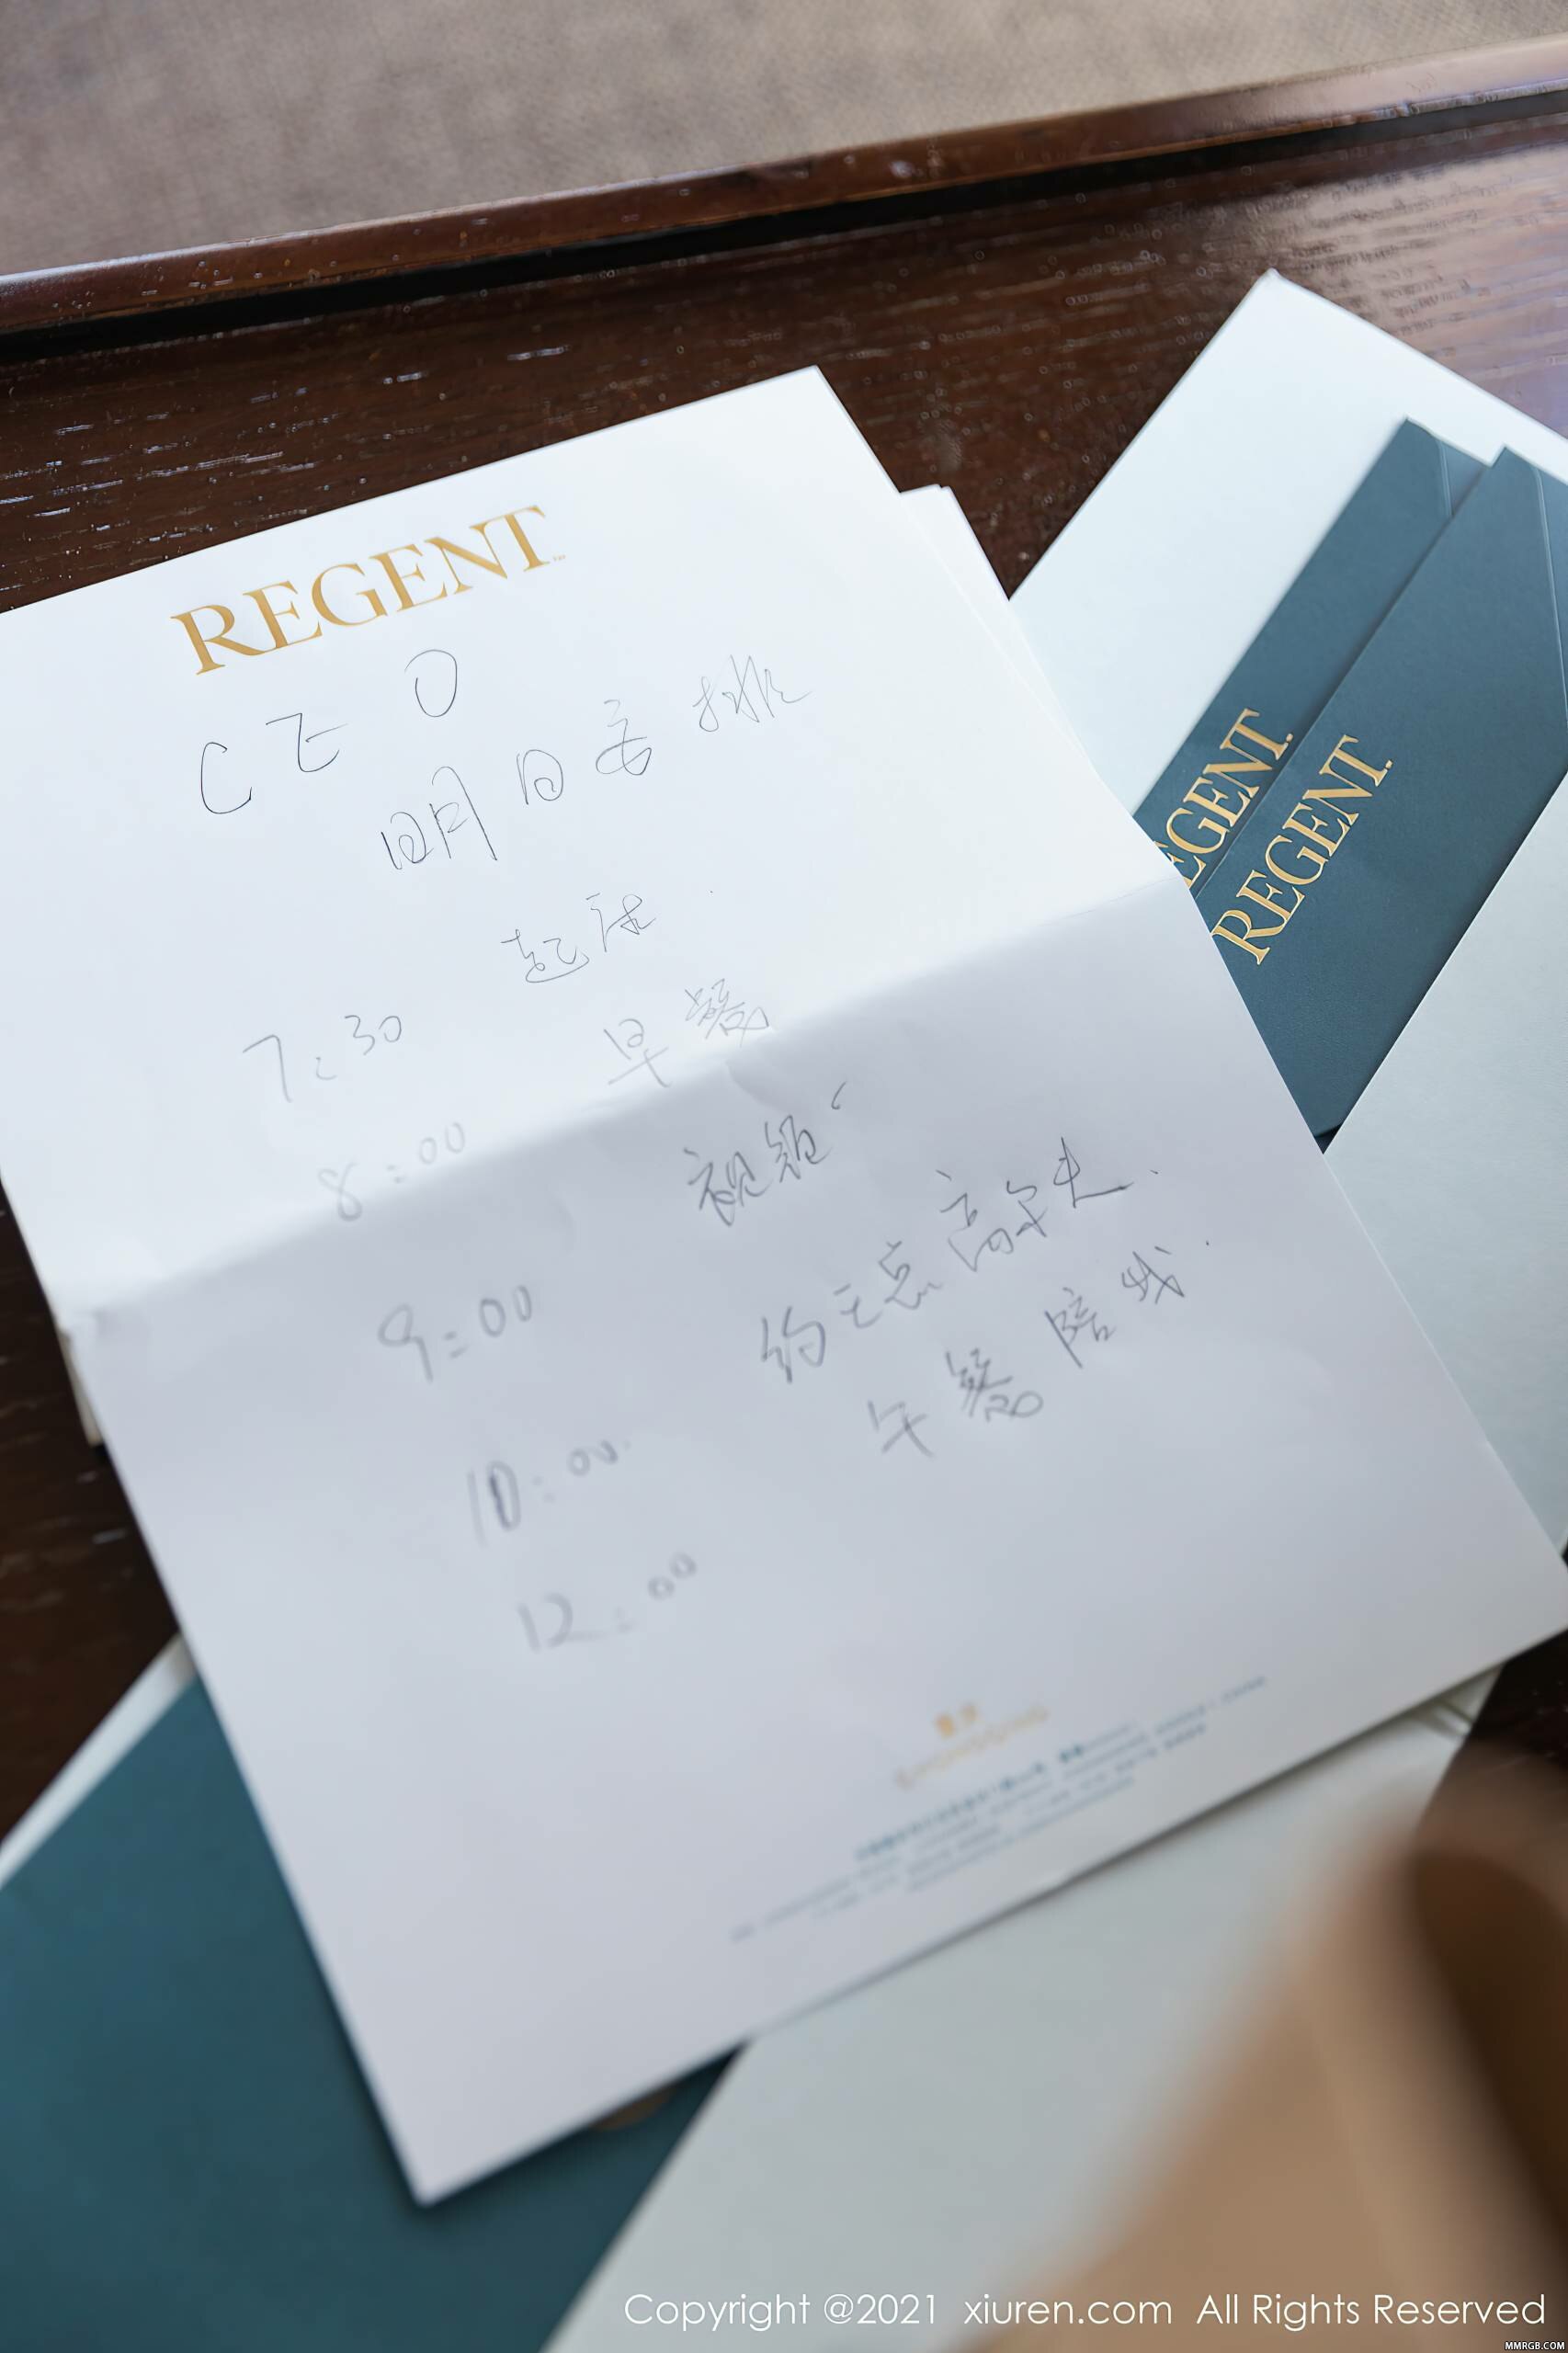 REGENT
CEO
明日安排
7:30 起床
8:00 早餐
9:00 视频
10:00 约王总高尔夫
12:00 午餐陪我
REGENT
REGENT
Copyright @2021 xiuren.com All Rights Reserved
MMRGB.COM